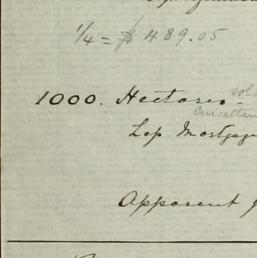 1/4 = $ 489.05
1000. Hectares sold
Lep. Mortgage
Apparent